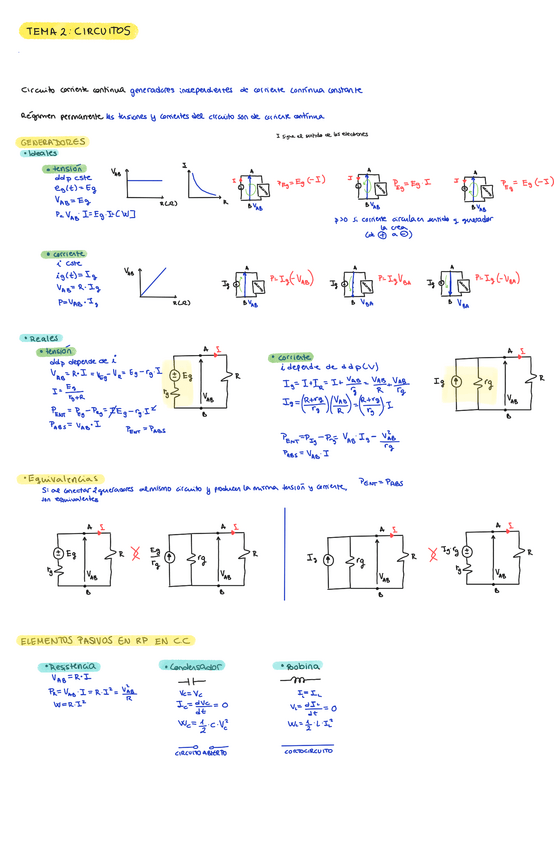 TEMA 2: CIRCUITOS
Circuito corriente continua generadores independientes de corriente continua constante
Régimen permanente las tensiones y corrientes del circuito son de corriente continua
I sigue el sentido de los electrones
GENERADORES
• Ideales
• tensión
ddp cste
eg(t) = Eg
VAB = Eg
P = VAB · I = Eg · I = [W]
VAB
R(Ω)
I
R
I
A
B
VAB
PEg = Eg (-I)
I
A
B
VAB
PEg = Eg · I
I
A
B
VAB
PEg = Eg (-I)
p>0 si corriente circula en sentido q generador
la crea
(de ⊕ a ⊖)
• corriente
i cste
ig(t) = Ig
VAB = R · Ig
P = VAB · Ig
VAB
R(Ω)
Ig
A
B
VAB
P = Ig (-VAB)
Ig
A
B
VBA
P = Ig VBA
Ig
A
B
VBA
P = Ig (-VBA)
• Reales
• tensión
ddp depende de i
VAB = R · I = VEg - VR = Eg - rg · I
I = Eg / rg+R
PENT = PEg - Prg = I Eg - rg I²
PABS = VAB · I
PENT = PABS
A
I
Eg
rg
VAB
R
B
• corriente
i depende de ddp (V)
Ig = I + IR = I + VAB/rg = VAB/R + VAB/rg
Ig = (R+rg/rg)(VAB/R) = (R+rg/rg) I
PENT = PIg - Prg = VAB Ig - VAB²/rg
PABS = VAB · I
A
I
Ig
rg
VAB
R
B
• Equivalencias
Si al conectar 2 generadores al mismo circuito y producen la misma tensión y corriente,
son equivalentes
PENT = PABS
A
I
Eg
rg
VAB
R
B
Eg/rg
A
I
rg
VAB
R
B
Ig
A
I
rg
VAB
R
B
Ig·rg
A
I
rg
VAB
R
B
ELEMENTOS PASIVOS EN RP EN CC
• Resistencia
VAB = R · I
PR = VAB · I = R · I² = VAB²/R
W = R · I²
• Condensador
VC = VC
IC = dVC/dt = 0
WC = 1/2 · C · VC²
CIRCUITO ABIERTO
• Bobina
IL = IL
VL = dIL/dt = 0
WL = 1/2 · L · IL²
CORTOCIRCUITO